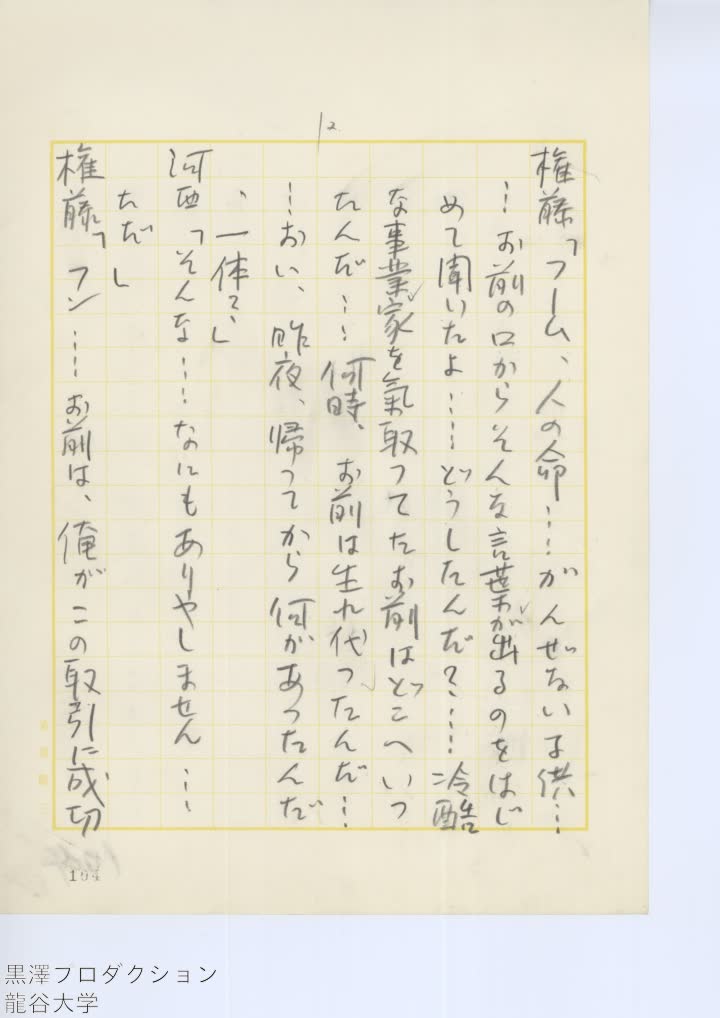 12
権藤「フーム、人の命…がんぜない子供…
…お前の口からそんな言葉が出るのをはじ
めて聞いたよ……どうしたんだ?……冷酷
な事業家を氣取ってたお前はどこへいっ
たんだ……何時、お前は生れ代ったんだ…
…おい、昨夜、帰ってから何があったんだ
、一体?」
河西「そんな……なにもありやしません…
ただ」
権藤「フン……お前は、俺がこの取引に成切
194
黒澤プロダクション
龍谷大学